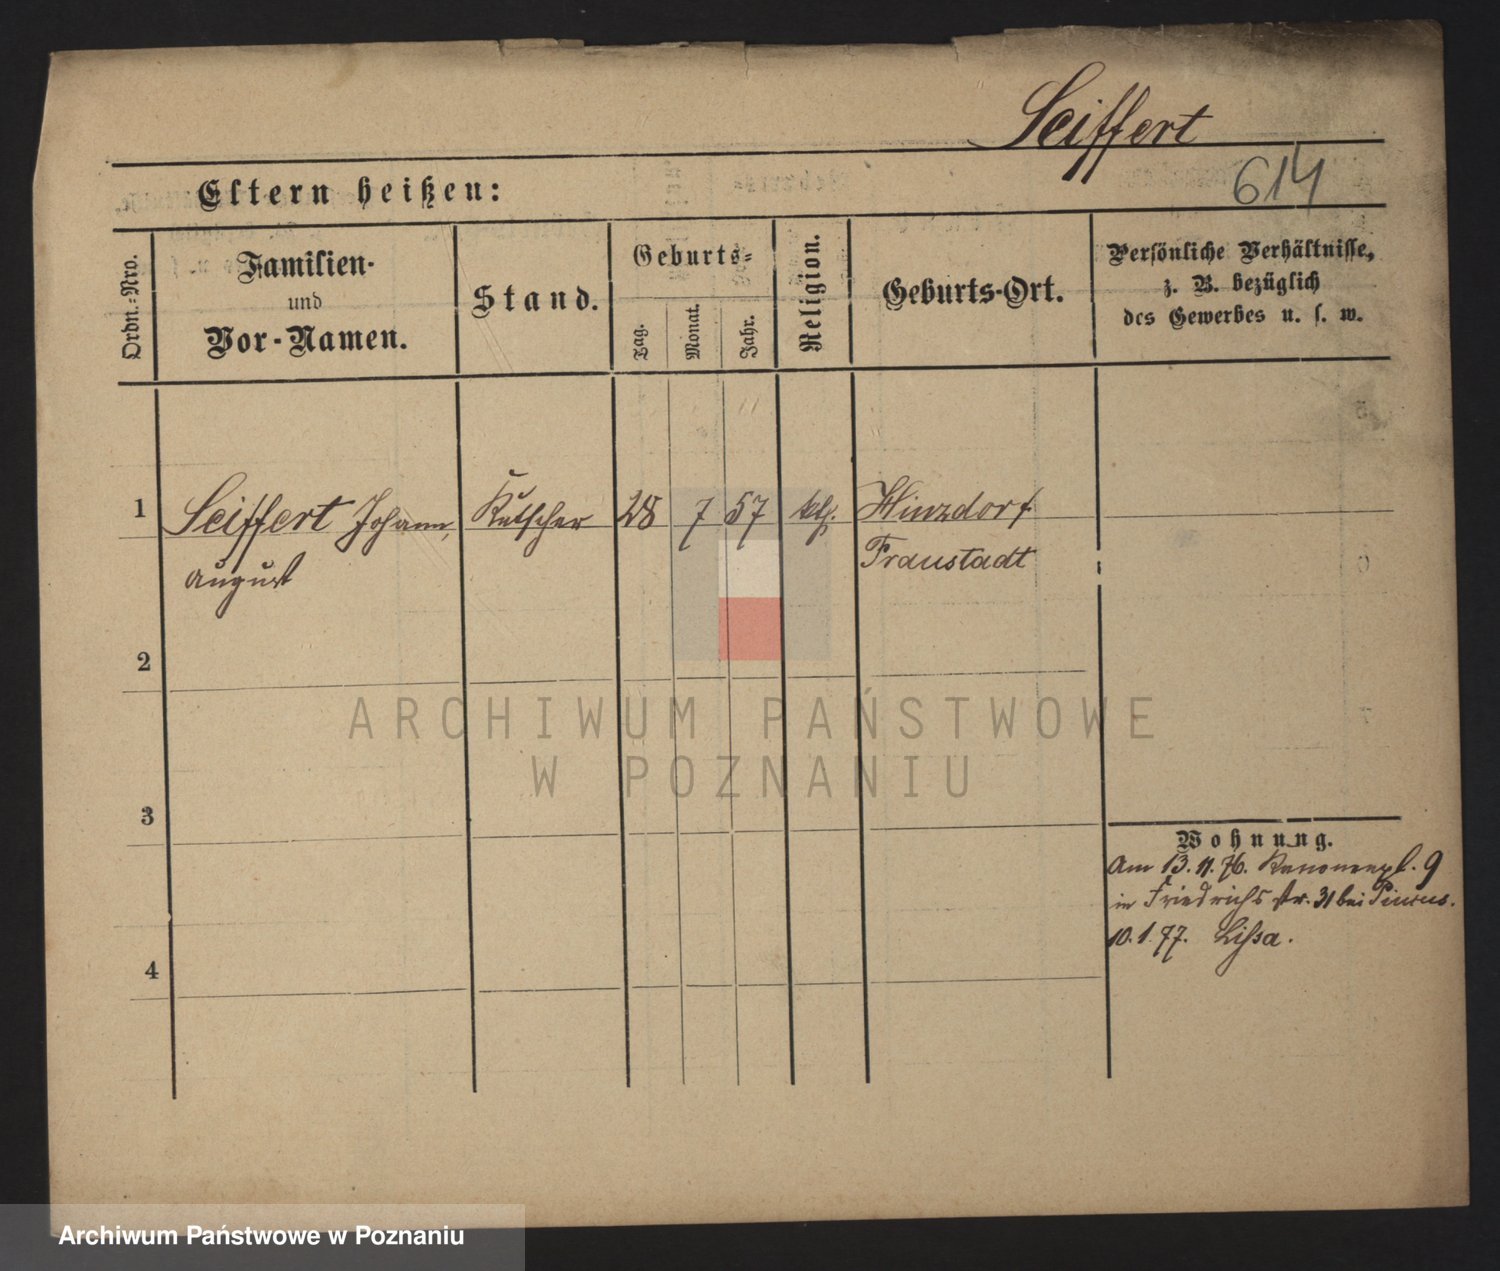 Seiffert
614
Eltern heißen:
Ordn.-Nro.
Familien-
und
Vor-Namen.
Stand.
Geburts-
Tag.
Monat.
Jahr.
Religion.
Geburts-Ort.
Persönliche Verhältnisse,
z. B. bezüglich
des Gewerbes u. s. w.
1
Seiffert Johann,
August
Kutscher
28
7
57
kth.
Hinzdorf
Fraustadt
2
3
4
Wohnung.
Am 13. 11. 76. Kanonenpl. 9
in Friedrichs str. 31 bei Pincus.
10. 1. 77. Lissa.
ARCHIWUM PAŃSTWOWE
W POZNANIU
Archiwum Państwowe w Poznaniu